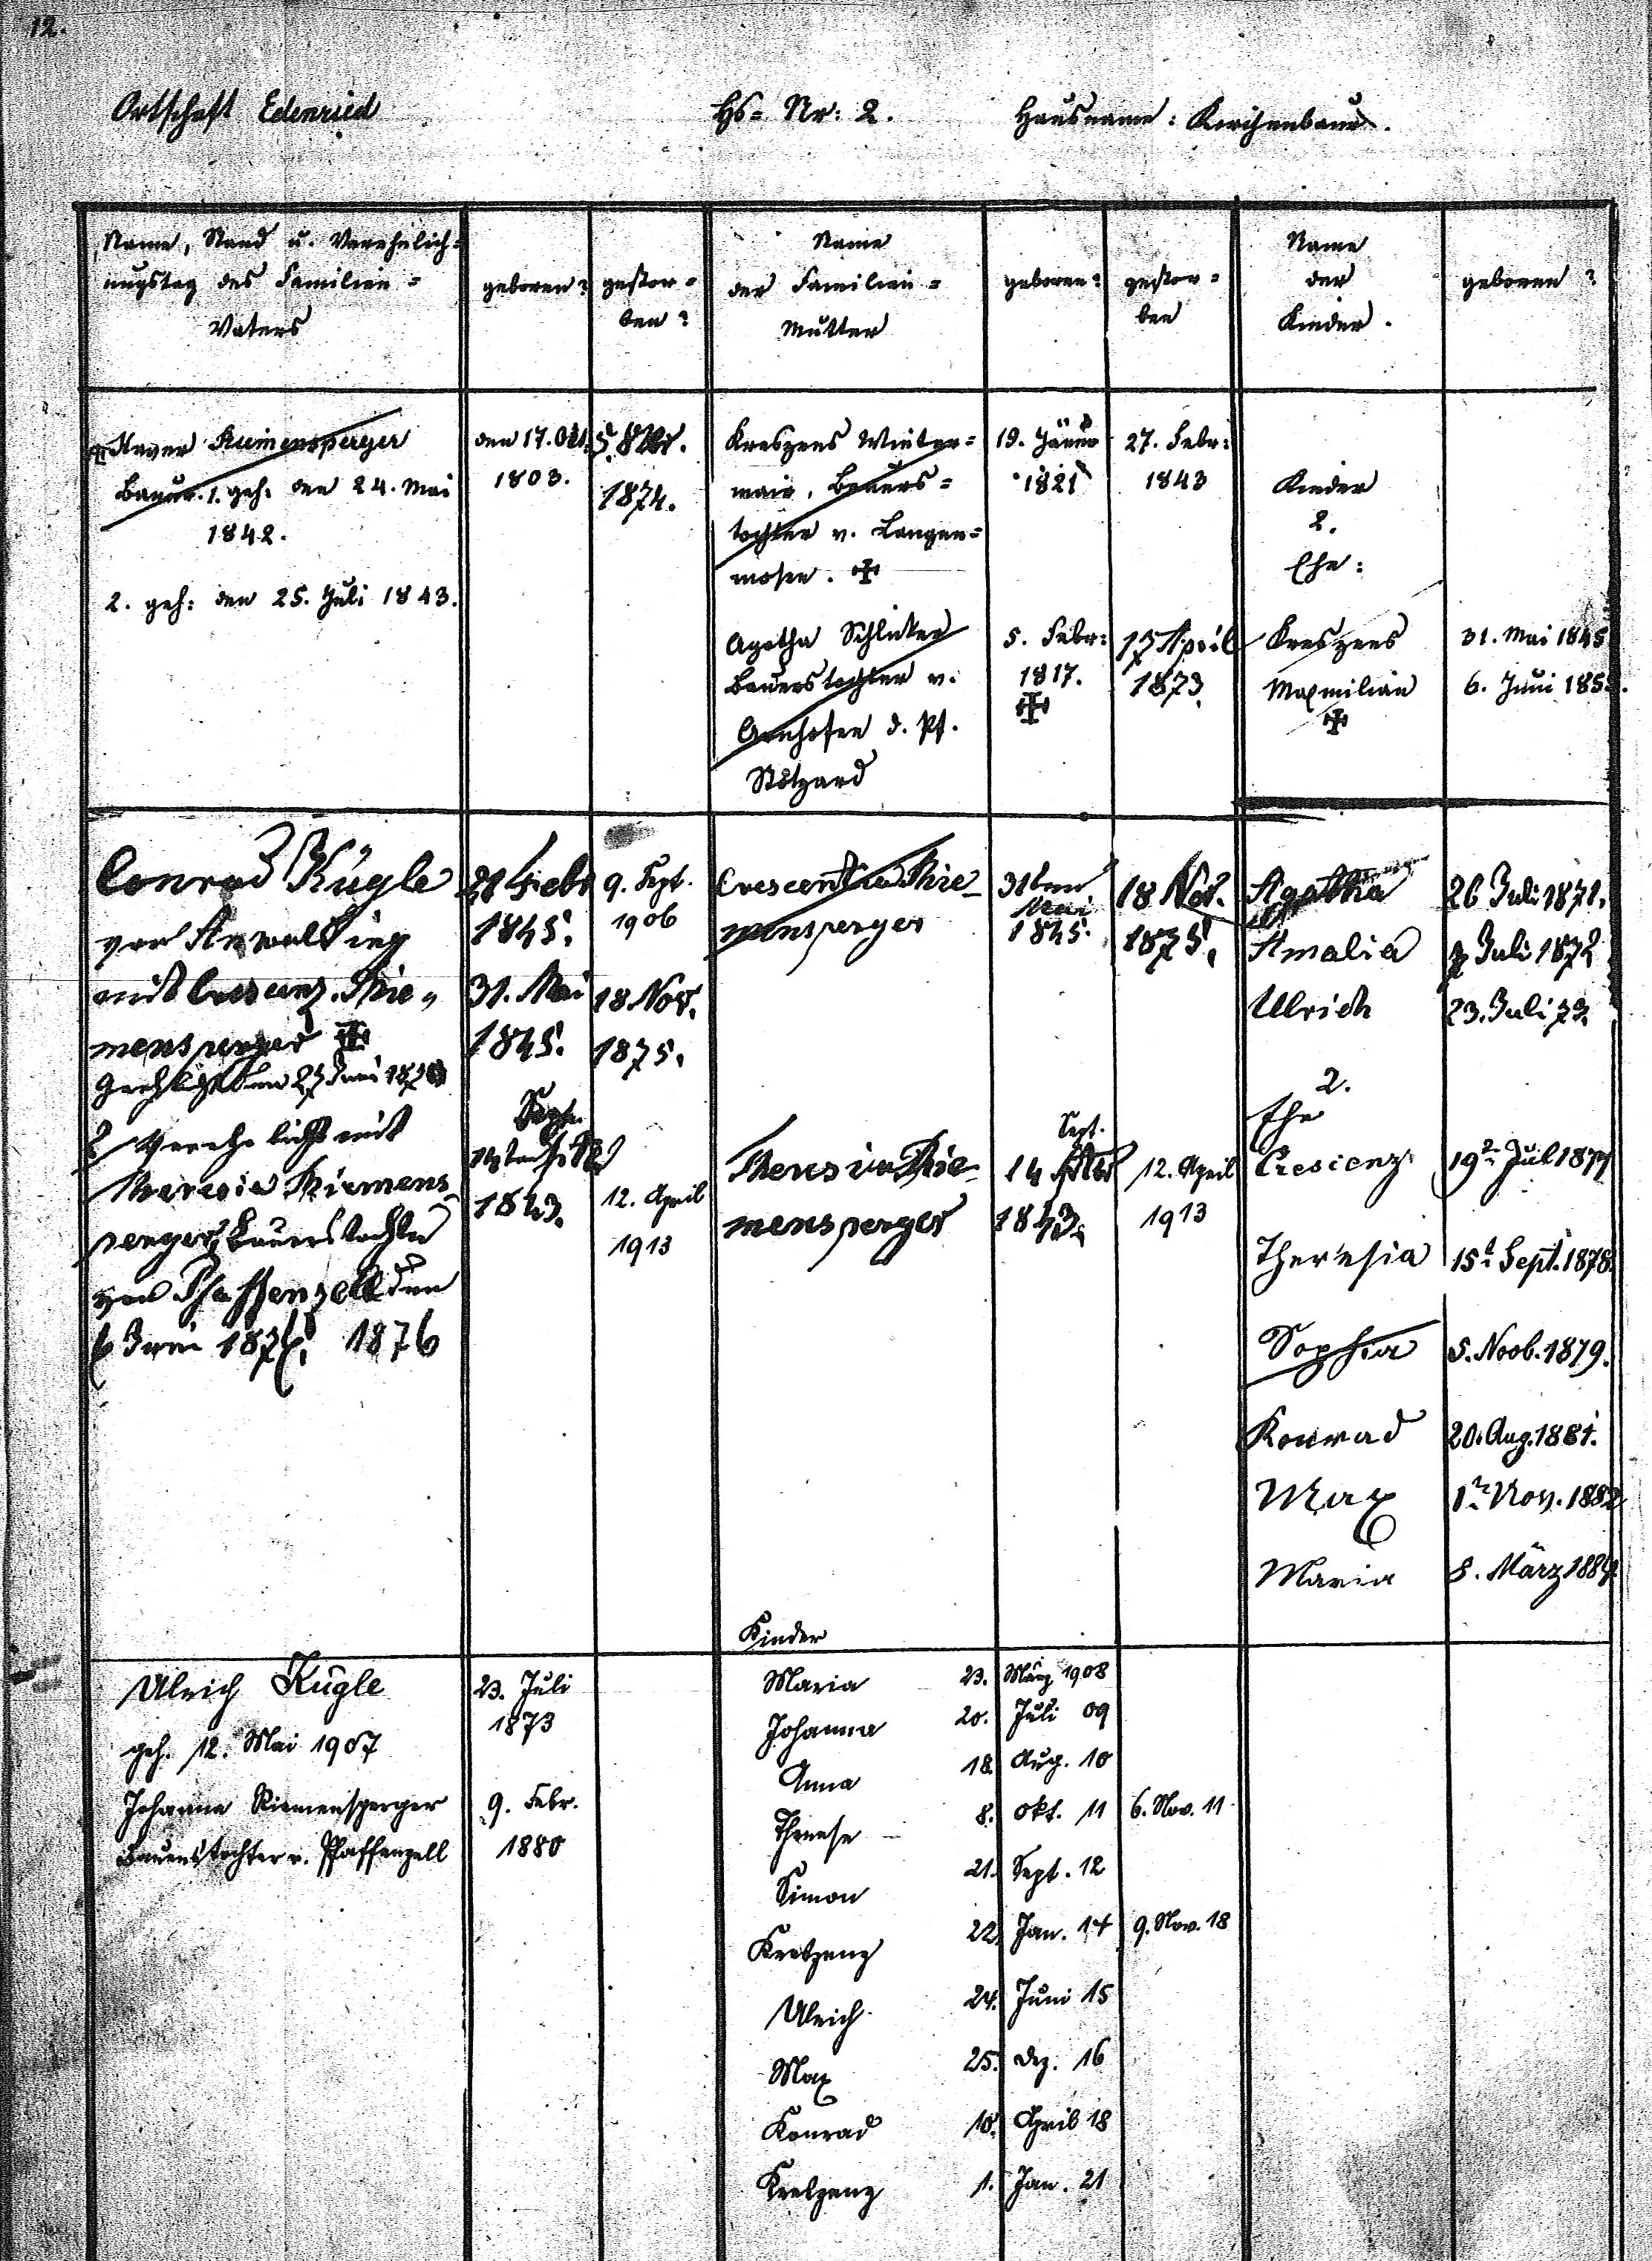 12.
Ortschaft Edenried
Hs= Nr: 2.
Hausname: Kirchenbaur.
Name, Stand u. Verehelich=
ungstag des Familien=
Vaters
geboren?
gestor=
ben?
Name
der Familien=
Mutter
geboren?
gestor=
ben
Name
der
Kinder.
geboren?
Xaver Riemensperger
Bauer. 1. geh. den 24. Mai
1842.
2. geh: den 25. Juli 1843.
den 17. Okt.
1803.
1874.
Kreszens Winter=
mair, Bauers=
tochter v. Langen=
mosen.
19. Jänner
1821
27. Febr:
1843
Agatha Schlicker
Bauerstochter v.
d. Pf.
Stotzard
5. Febr:
1817.
17 April
1873.
Kinder
2.
Ehe:
Kreszens
31. Mai 1845
Maximilian
6. Juni
Conrad Kügle
von
mit Crescenz. Rie=
mensperger
2/ Verehelicht mit
Theresia Riemens
perger, Bauerstochter
von Pfaffenzell den
6 Juni 1876
Febr
1845.
31. Mai
1845.
Sept.
1843.
9. Sept.
1906
18. Nov.
1875.
12. April
1913
Crescentia Rie=
mensperger
31ten
Mai
1845.
18 Nov.
1875.
Theresia Rie=
mensperger
Sept.
14
1843.
12. April
1913
Agatha
26 Juli 1871.
Amalia
Juli 1872
Ulrich
23. Juli 73.
2.
Ehe
Crescenz
19t Jul 1877
Theresia
15t Sept. 1878.
Sophia
5. Novb. 1879.
Konrad
20. Aug. 1881.
Max
1t Nov. 1882
Maria
8. März 1884
Kinder
Ulrich Kügle
geh. 12. Mai 1907
Johanna Riemensperger
Bauerstochter v. Pfaffenzell
23. Juli
1873
9. Febr.
1880
Maria 23. März 1908
Johanna 20. Juli 09
Anna 18. Aug. 10
Therese 8. Okt. 11 6. Nov. 11
Simon 21. Sept. 12
Kreszenz 22. Jan. 14 9. Nov. 18
Ulrich 24. Juni 15
Max 25. Dez. 16
Konrad 10. April 18
Kreszenz 1. Jan. 21